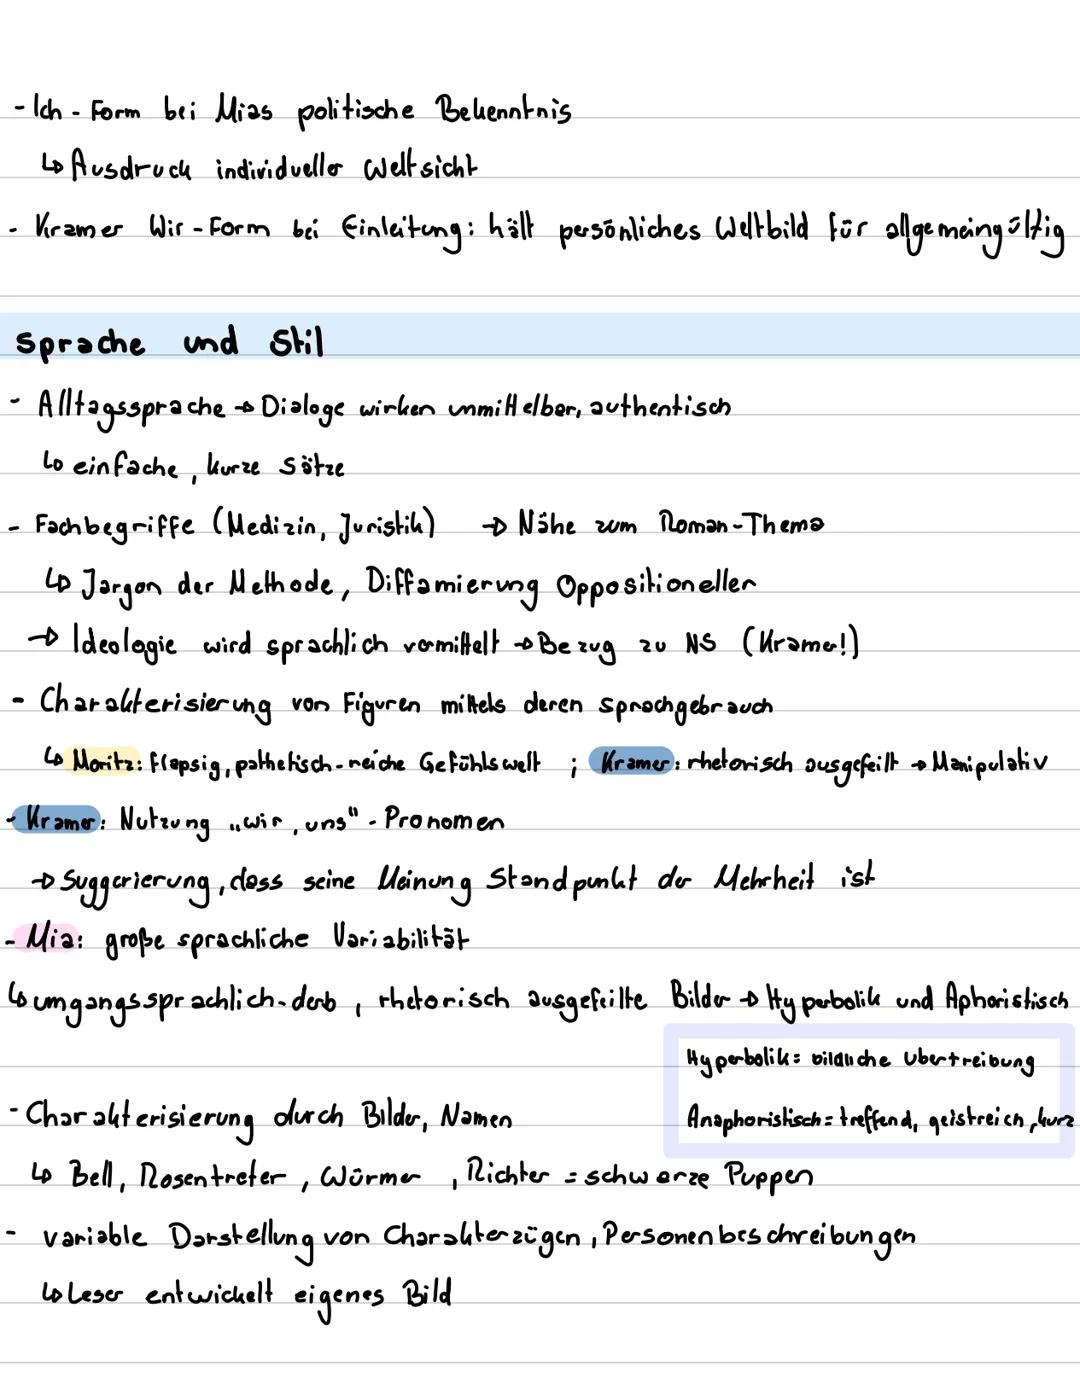 - Ich - Form bei Mias politische Bekenntnis
↳ Ausdruck individueller Weltsicht
- Kramer Wir - Form bei Einleitung: hält persönliches Weltbild für allgemeingültig
Sprache und Stil
- Alltagssprache → Dialoge wirken unmittelbar, authentisch
↳ einfache, kurze Sätze
- Fachbegriffe (Medizin, Juristik) → Nähe zum Roman-Thema
↳ Jargon der Methode, Diffamierung Oppositioneller
→ Ideologie wird sprachlich vermittelt → Bezug zu NS (Kramer!)
- Charakterisierung von Figuren mittels deren Sprachgebrauch
↳ Moritz: flapsig, pathetisch - reiche Gefühlswelt ; Kramer: rhetorisch ausgefeilt → Manipulativ
- Kramer: Nutzung „wir, uns" - Pronomen
→ Suggerierung, dass seine Meinung Standpunkt der Mehrheit ist
- Mia: große sprachliche Variabilität
↳ umgangssprachlich-derb, rhetorisch ausgefeilte Bilder → Hyperbolik und Aphoristisch
Hyperbolik= bildliche Übertreibung
Anaphoristisch= treffend, geistreich, kurz
- Charakterisierung durch Bilder, Namen
↳ Bell, Rosentreter, Würmer, Richter = schwarze Puppen
- variable Darstellung von Charakterzügen, Personenbeschreibungen
↳ Leser entwickelt eigenes Bild